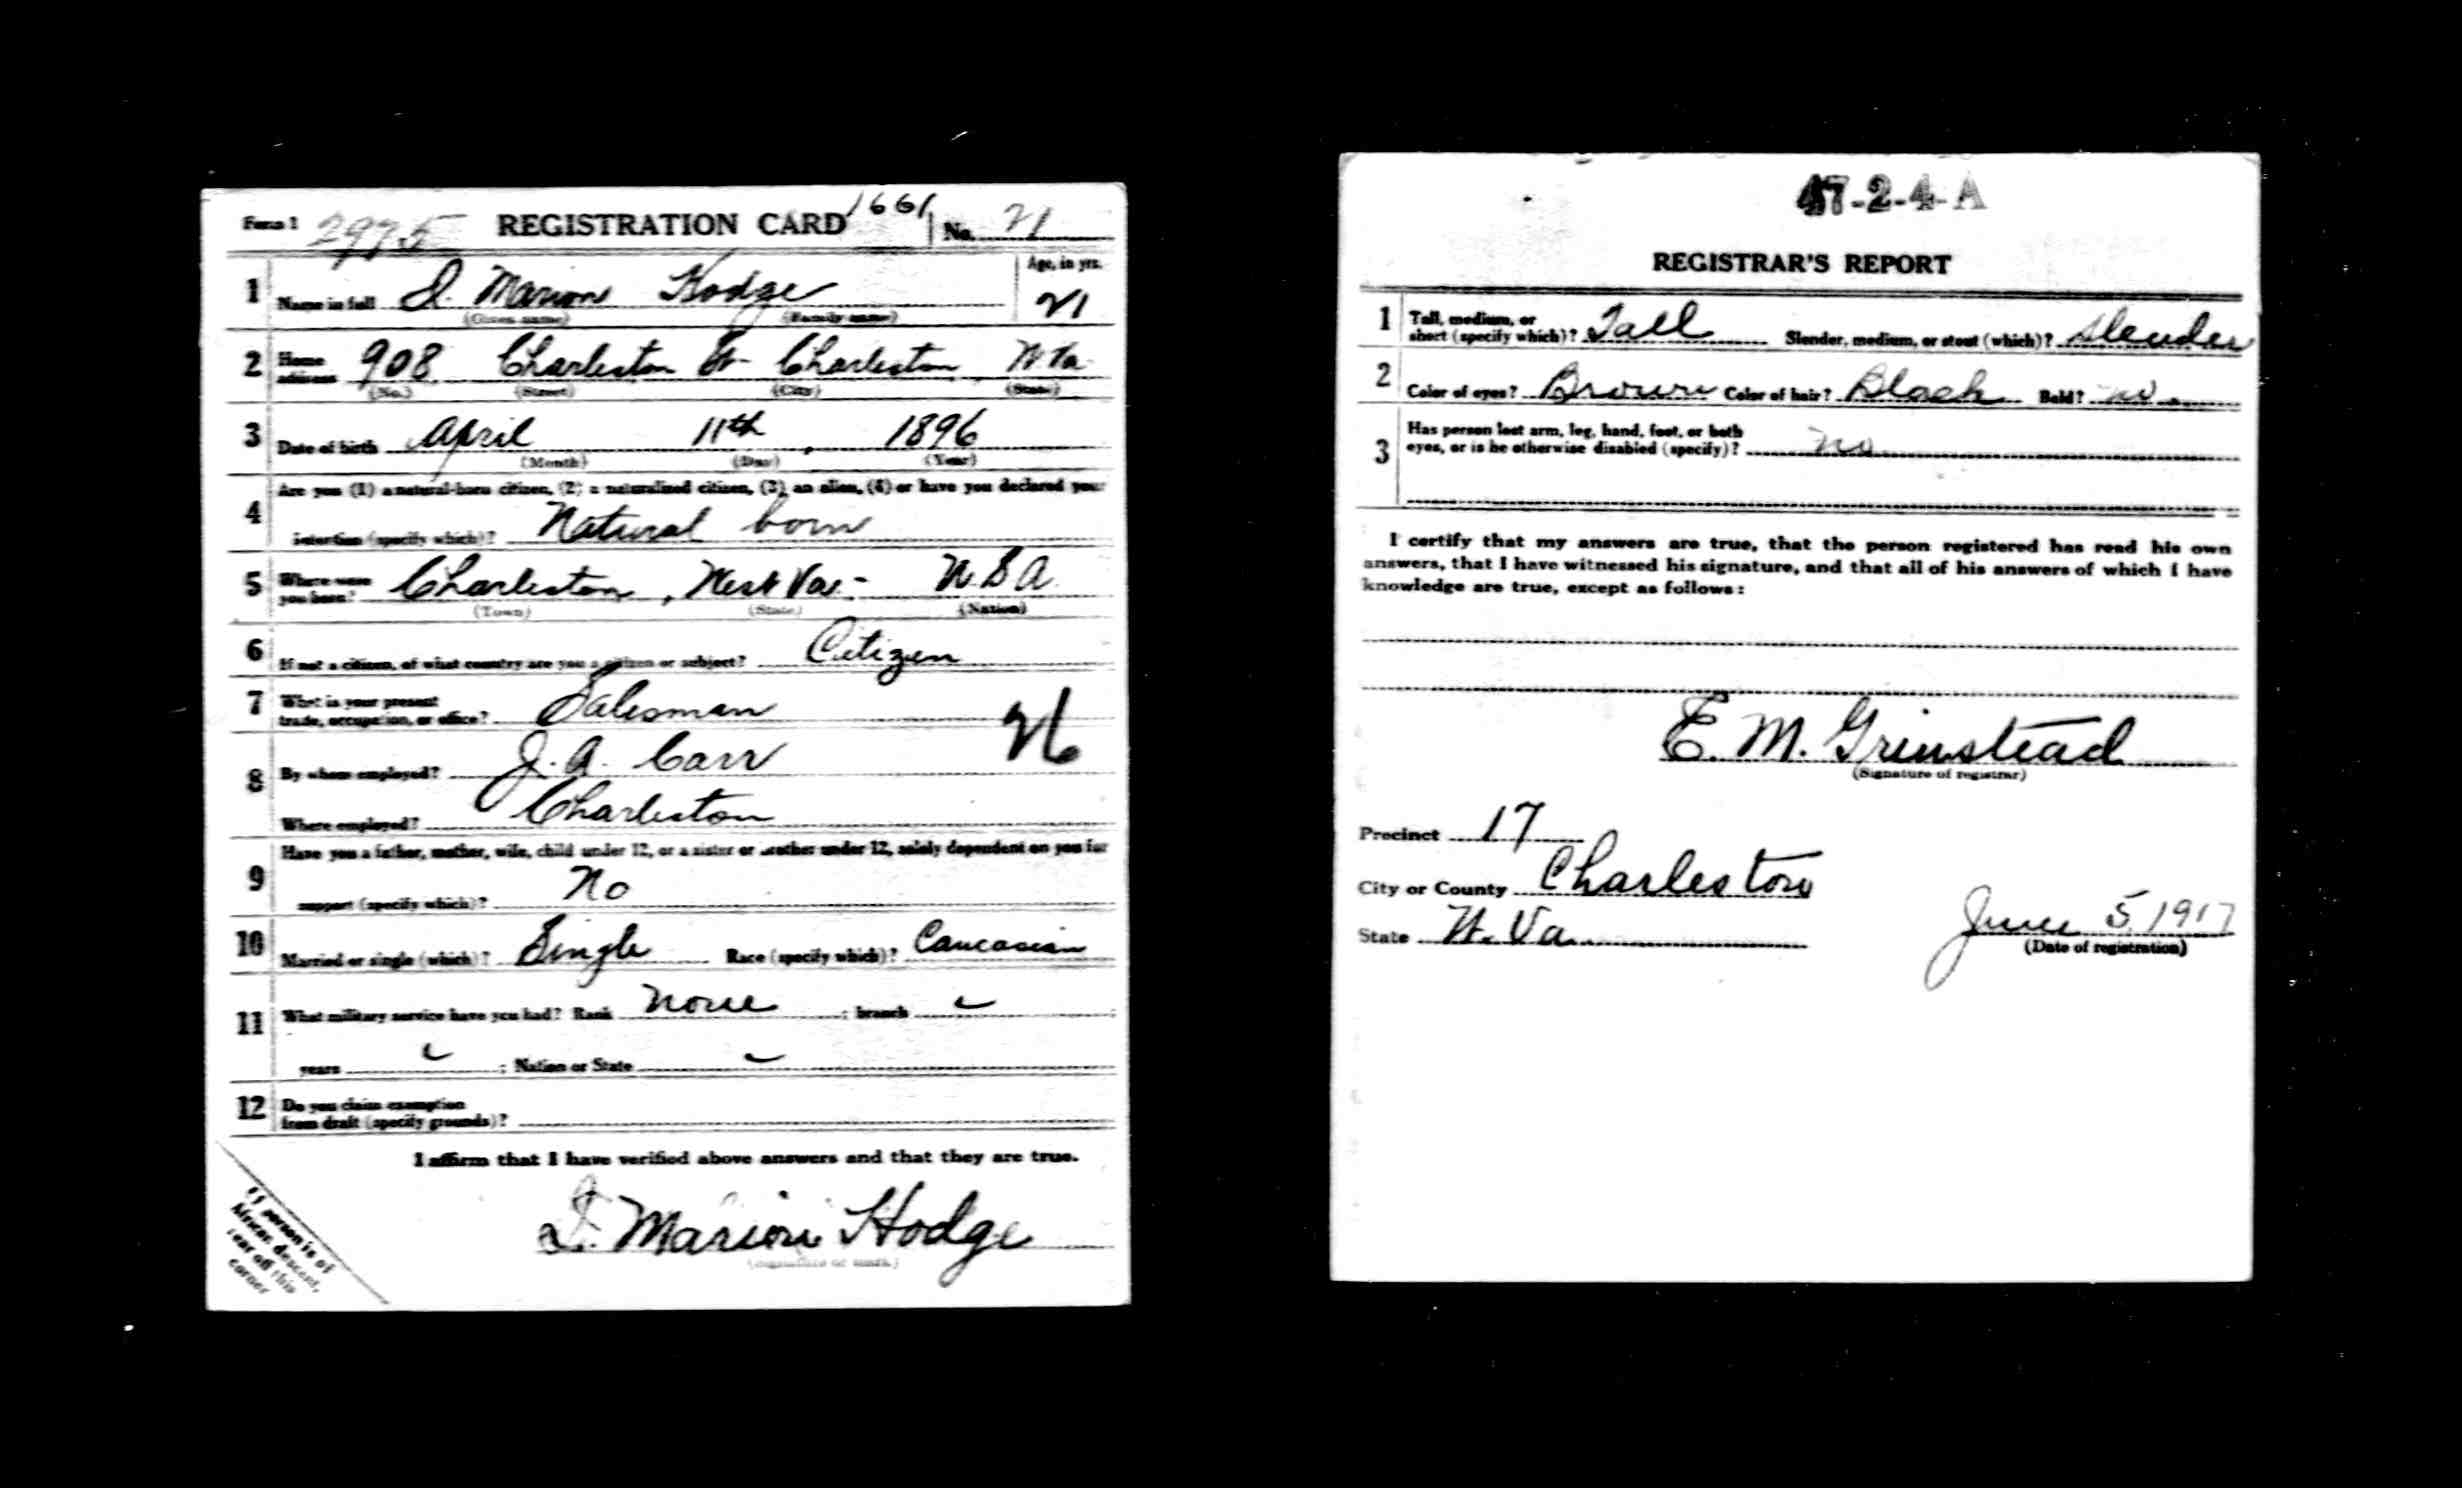 Form 1 2975 REGISTRATION CARD 1661 No. 21
1 Name in full I. Marion Hodge Age, in yrs. 21
(Given name) (Family name)
2 Home address 908 Charleston St Charleston W Va
(No.) (Street) (City) (State)
3 Date of birth April 11th, 1896
(Month) (Day) (Year)
4 Are you (1) a natural-born citizen, (2) a naturalized citizen, (3) an alien, (4) or have you declared your
intention (specify which)? Natural born
5 Where were you born? Charleston, West Va- U.S.A.
(Town) (State) (Nation)
6 If not a citizen, of what country are you a citizen or subject? Citizen
7 What is your present
trade, occupation, or office? Salesman
8 By whom employed? J. A. Carr
Where employed? Charleston
9 Have you a father, mother, wife, child under 12, or a sister or brother under 12, solely dependent on you for
support (specify which)? No
10 Married or single (which)? Single Race (specify which)? Caucasian
11 What military service have you had? Rank None ; branch
years ; Nation or State
12 Do you claim exemption
from draft (specify grounds)?
I affirm that I have verified above answers and that they are true.
I. Marion Hodge
(Signature or mark)
If person is of
African descent,
tear off this
corner
47-2-4-A
REGISTRAR'S REPORT
1 Tall, medium, or
short (specify which)? Tall Slender, medium, or stout (which)? Slender
2 Color of eyes? Brown Color of hair? Black Bald? no
3 Has person lost arm, leg, hand, foot, or both
eyes, or is he otherwise disabled (specify)? no
I certify that my answers are true, that the person registered has read his own
answers, that I have witnessed his signature, and that all of his answers of which I have
knowledge are true, except as follows:
E. M. Grinstead
(Signature of registrar)
Precinct 17
City or County Charleston
State W. Va. June 5, 1917
(Date of registration)